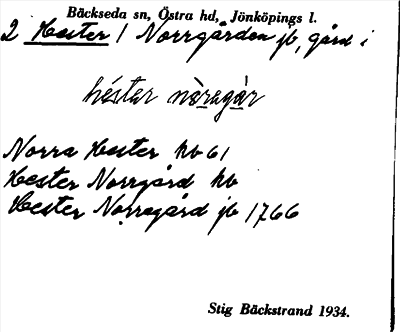 Bäckseda sn, Östra hd, Jönköpings l.
2 Hester / Norrgården jb, gård i
héstar nòragàr
Norra Hester hb 61
Hester Norrgård hb
Hester Norregård jb 1766
Stig Bäckstrand 1934.